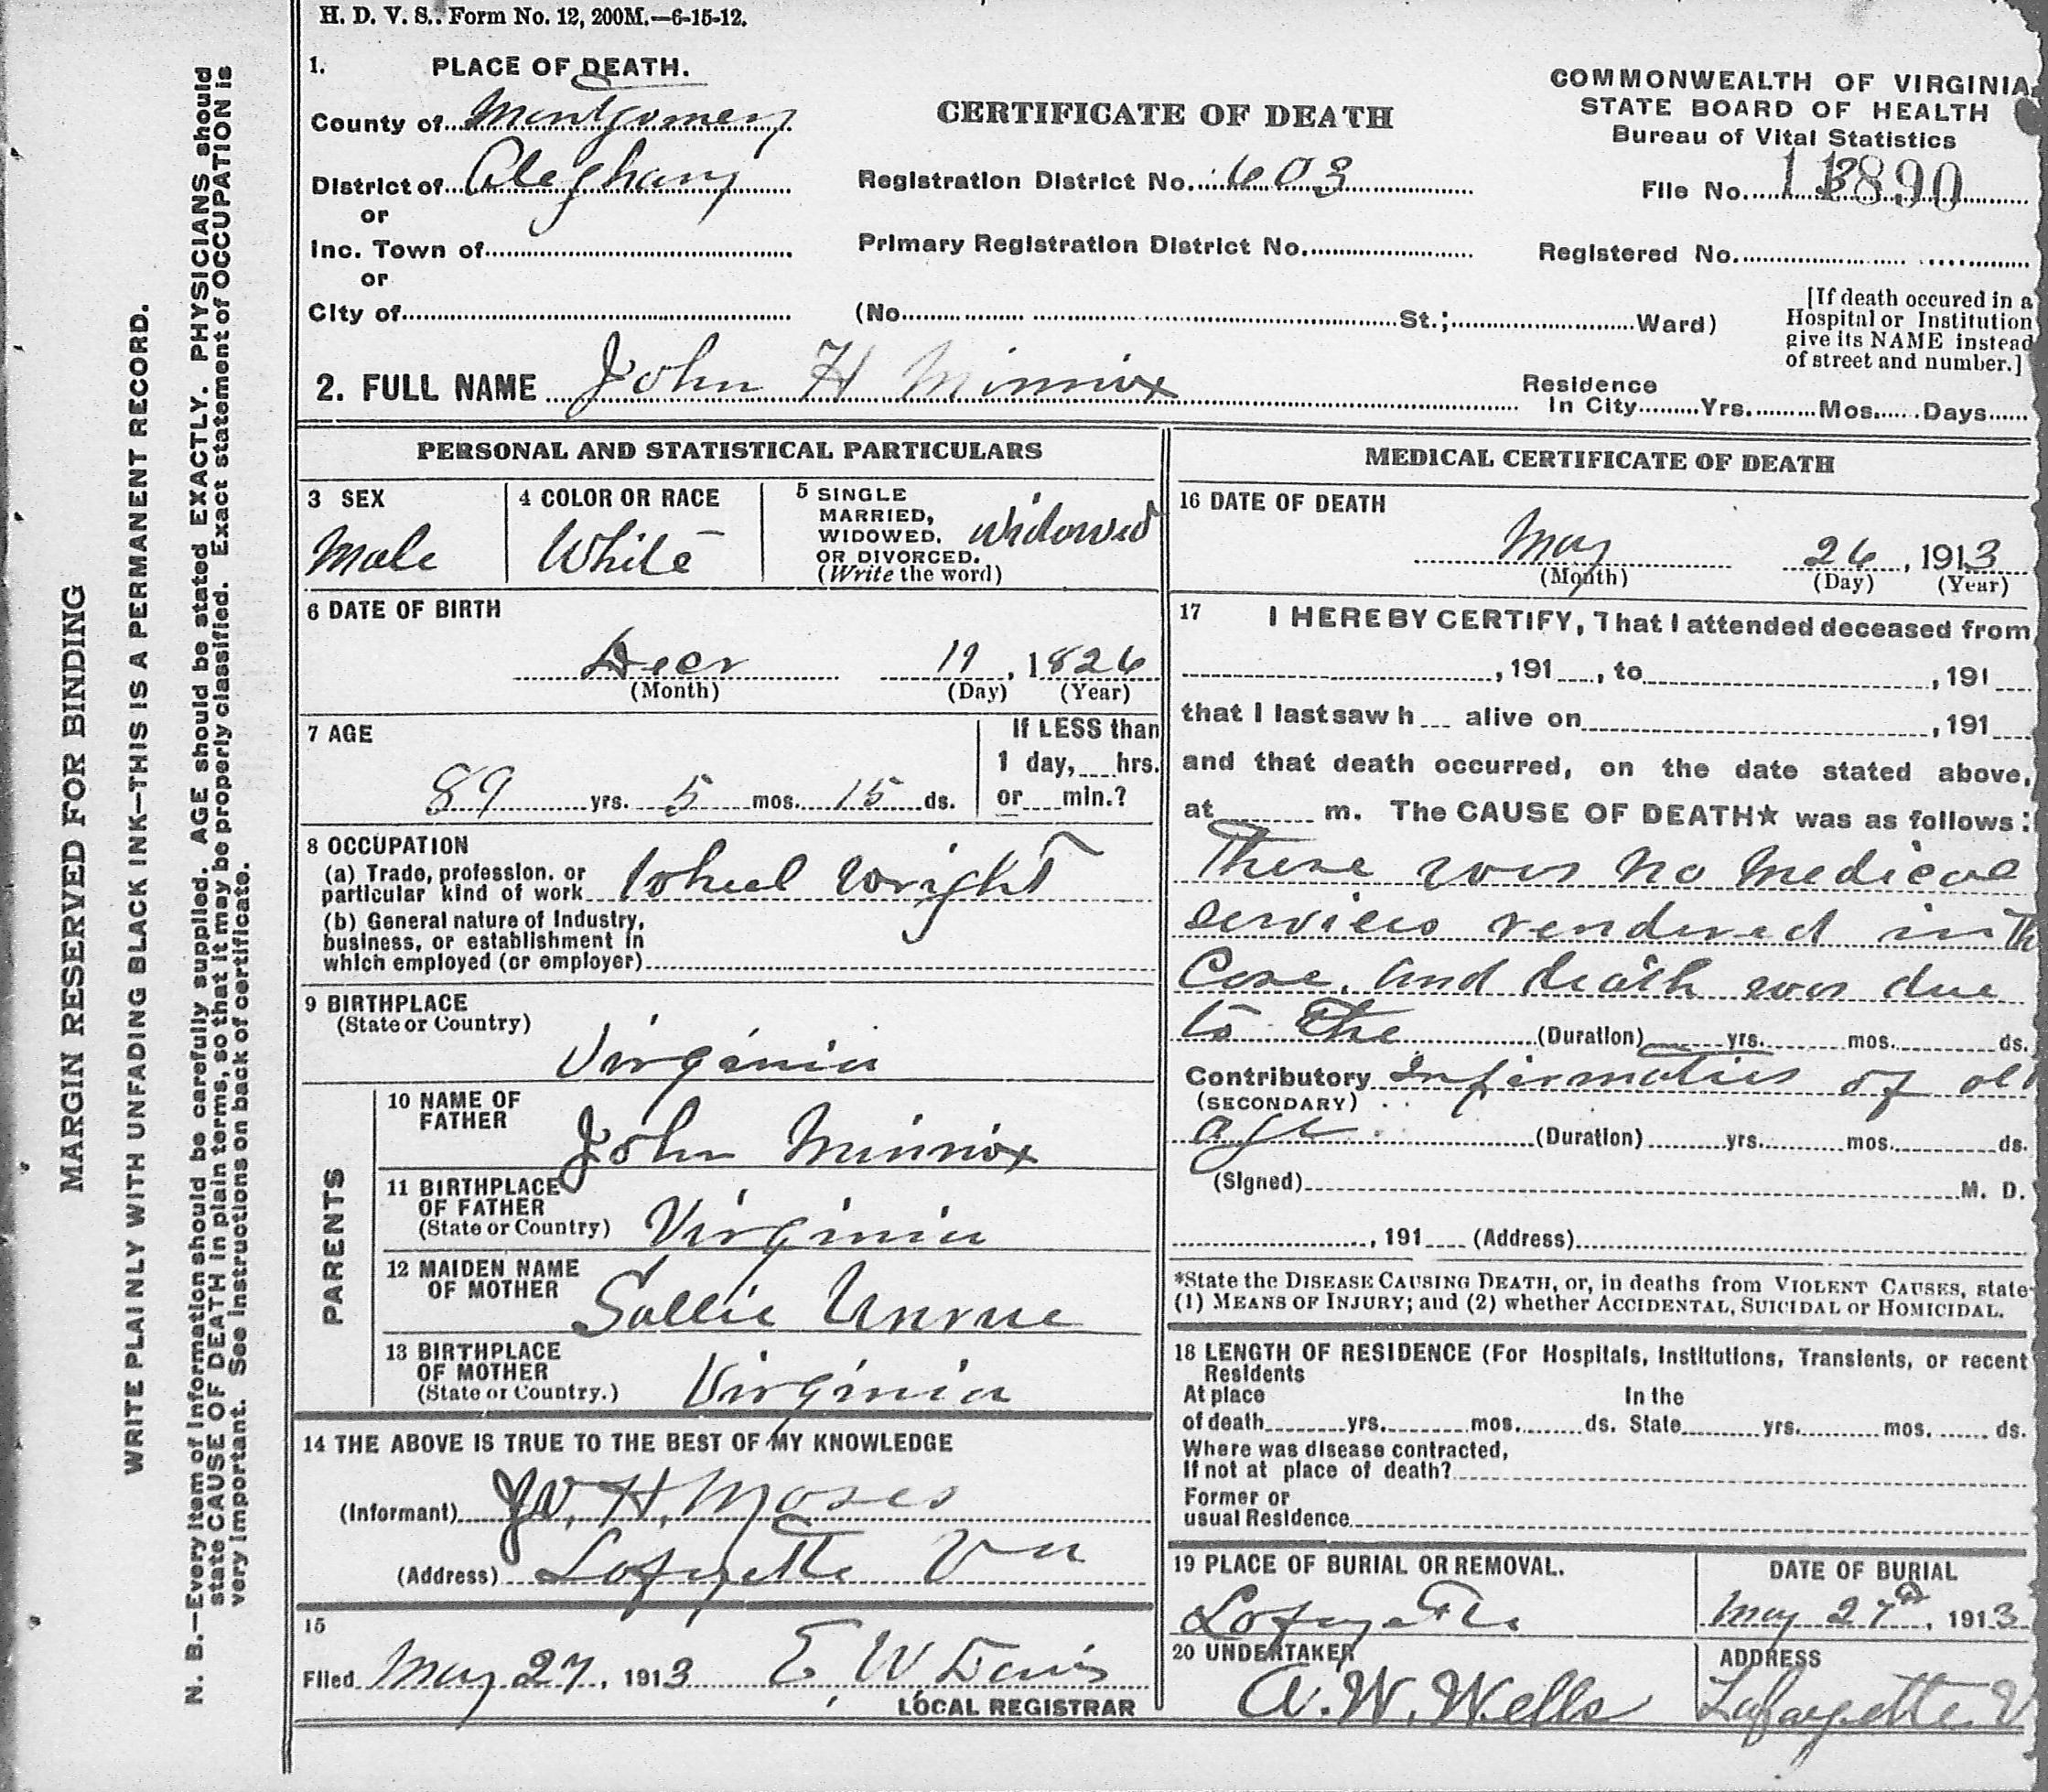 H. D. V. S.. Form No. 12, 200M.—6-15-12.
1. PLACE OF DEATH.
County of Montgomery
District of Aleghany
or
Inc. Town of
or
City of
CERTIFICATE OF DEATH
Registration District No. 603
Primary Registration District No.
(No. St.; Ward)
COMMONWEALTH OF VIRGINIA
STATE BOARD OF HEALTH
Bureau of Vital Statistics
File No.
Registered No.
[If death occured in a
Hospital or Institution
give its NAME instead
of street and number.]
2. FULL NAME John H Minnix
Residence
In City Yrs. Mos. Days
PERSONAL AND STATISTICAL PARTICULARS
3 SEX
Male
4 COLOR OR RACE
White
5 SINGLE
MARRIED,
WIDOWED,
OR DIVORCED.
(Write the word)
Widowed
6 DATE OF BIRTH
Decr 11, 1826
(Month) (Day) (Year)
7 AGE
89 yrs. 5 mos. 15 ds.
If LESS than
1 day, hrs.
or min.?
8 OCCUPATION
(a) Trade, profession, or
particular kind of work Wheel Wright
(b) General nature of Industry,
business, or establishment in
which employed (or employer)
9 BIRTHPLACE
(State or Country)
Virginia
PARENTS
10 NAME OF
FATHER
John Minnix
11 BIRTHPLACE
OF FATHER
(State or Country) Virginia
12 MAIDEN NAME
OF MOTHER
Sallie
13 BIRTHPLACE
OF MOTHER
(State or Country.) Virginia
14 THE ABOVE IS TRUE TO THE BEST OF MY KNOWLEDGE
(Informant) H. Moses
(Address) Lafayette Va
15
Filed May 27, 1913 E W Davis
LOCAL REGISTRAR
MEDICAL CERTIFICATE OF DEATH
16 DATE OF DEATH
May 26, 1913
(Month) (Day) (Year)
17 I HEREBY CERTIFY, That I attended deceased from
, 191 , to , 191
that I last saw h alive on , 191
and that death occurred, on the date stated above,
at m. The CAUSE OF DEATH★ was as follows:
There was no medical
services rendered in Th
Case. and death was due
to the (Duration) yrs. mos. ds.
Contributory Infirmaties of old
(SECONDARY)
age (Duration) yrs. mos. ds.
(Signed) M. D.
, 191 (Address)
*State the DISEASE CAUSING DEATH, or, in deaths from VIOLENT CAUSES, state
(1) MEANS OF INJURY; and (2) whether ACCIDENTAL, SUICIDAL or HOMICIDAL.
18 LENGTH OF RESIDENCE (For Hospitals, Institutions, Transients, or recent
Residents
At place In the
of death yrs. mos. ds. State yrs. mos. ds.
Where was disease contracted,
If not at place of death?
Former or
usual Residence
19 PLACE OF BURIAL OR REMOVAL.
Lafayette
DATE OF BURIAL
May 27th, 1913
20 UNDERTAKER
A. W. Wells
ADDRESS
Lafayette V
MARGIN RESERVED FOR BINDING
WRITE PLAINLY WITH UNFADING BLACK INK—THIS IS A PERMANENT RECORD.
N. B.—Every item of Information should be carefully supplied. AGE should be stated EXACTLY. PHYSICIANS should
state CAUSE OF DEATH in plain terms, so that it may be properly classified. Exact statement of OCCUPATION is
very important. See instructions on back of certificate.